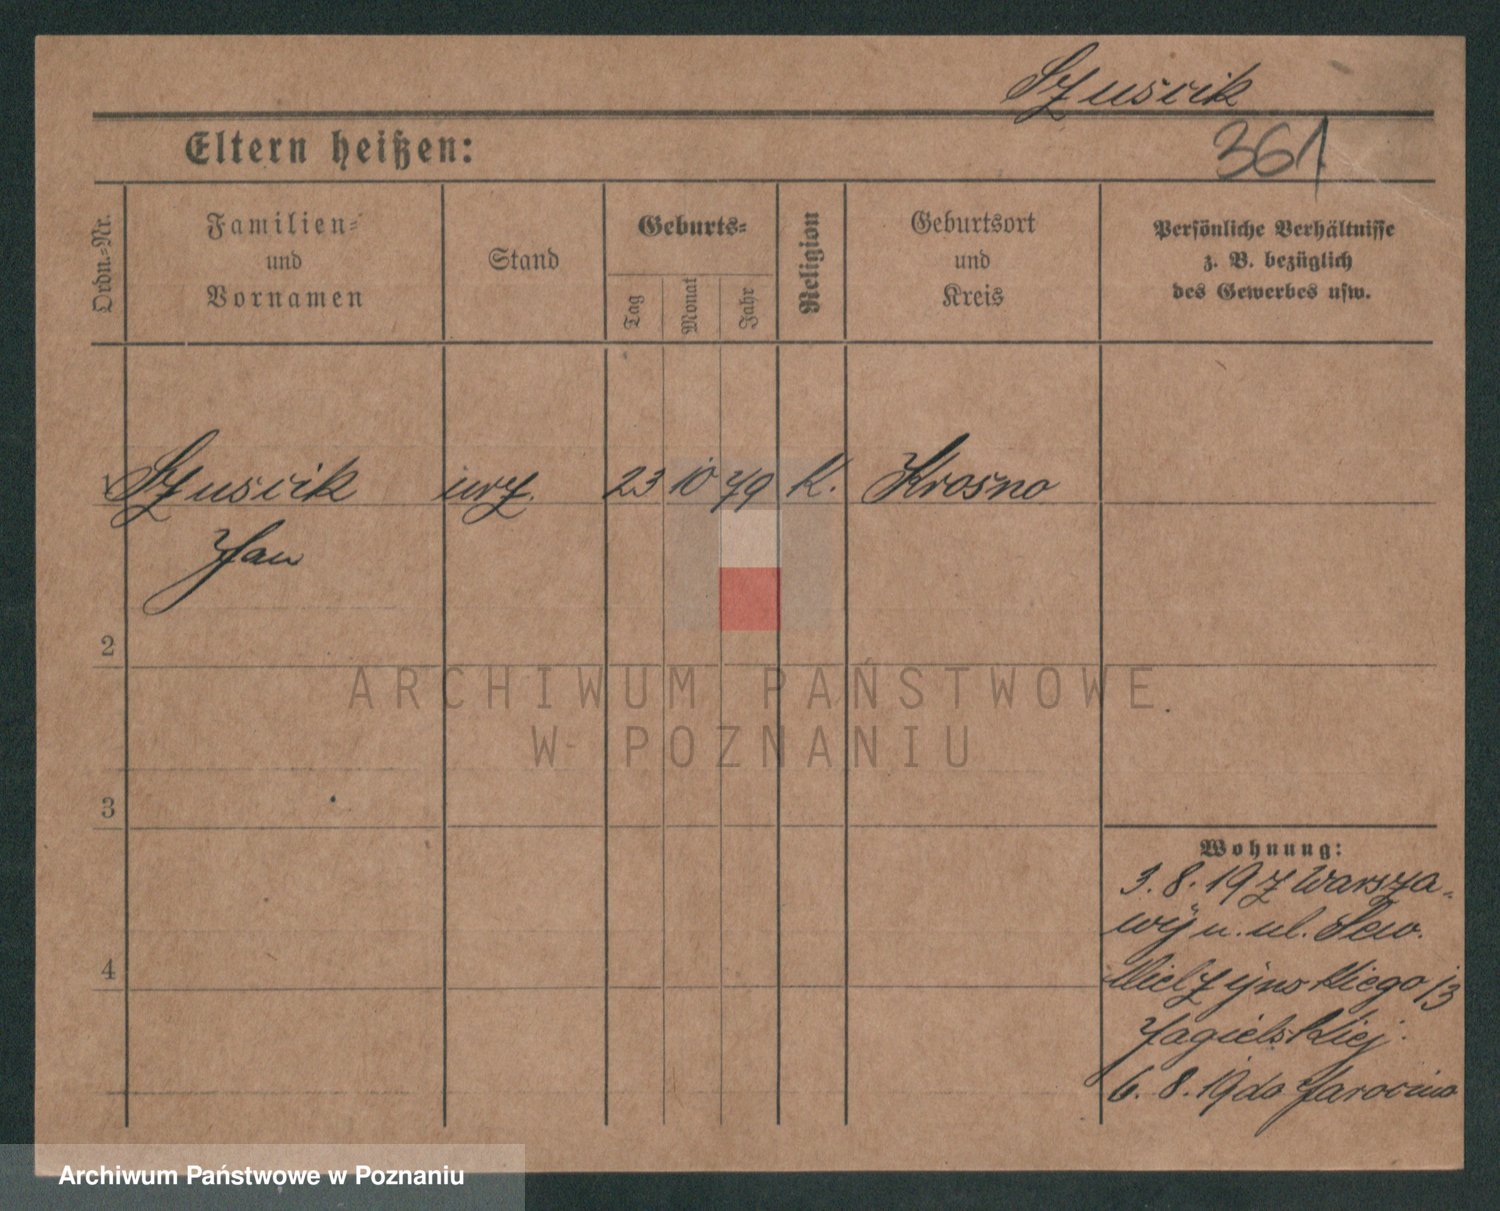 Szuscik
361
Eltern heißen:
Ordn.-Nr.
Familien-
und
Vornamen
Stand
Geburts-
Tag
Monat
Jahr
Religion
Geburtsort
und
Kreis
Persönliche Verhältnisse
z. B. bezüglich
des Gewerbes usw.
1 Szuscik urz. 23 10 79 K. Krosno
Jan
2
3
4
Wohnung:
3. 8. 19 z Warsza-
wy u. ul. Sew.
Mielzynskiego /3
Jagielskiej.
6. 8. 19 do Jarocina
ARCHIWUM PAŃSTWOWE
W POZNANIU
Archiwum Państwowe w Poznaniu